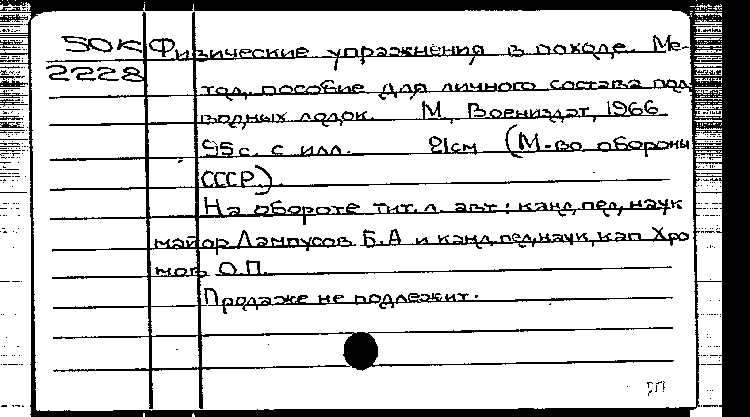 50К Физические упражнения в походе. Ме-
2228
тод. пособие для личного состава под
водных лодок. М, Воениздат, 1966
95с. с илл. 21см (М-во обороны
СССР).
На обороте тит. л. авт: канд, пед, наук
майор Лампусов Б.А и канд, пед, наук, кап Хро
мов О.П.
Продаже не подлежит.